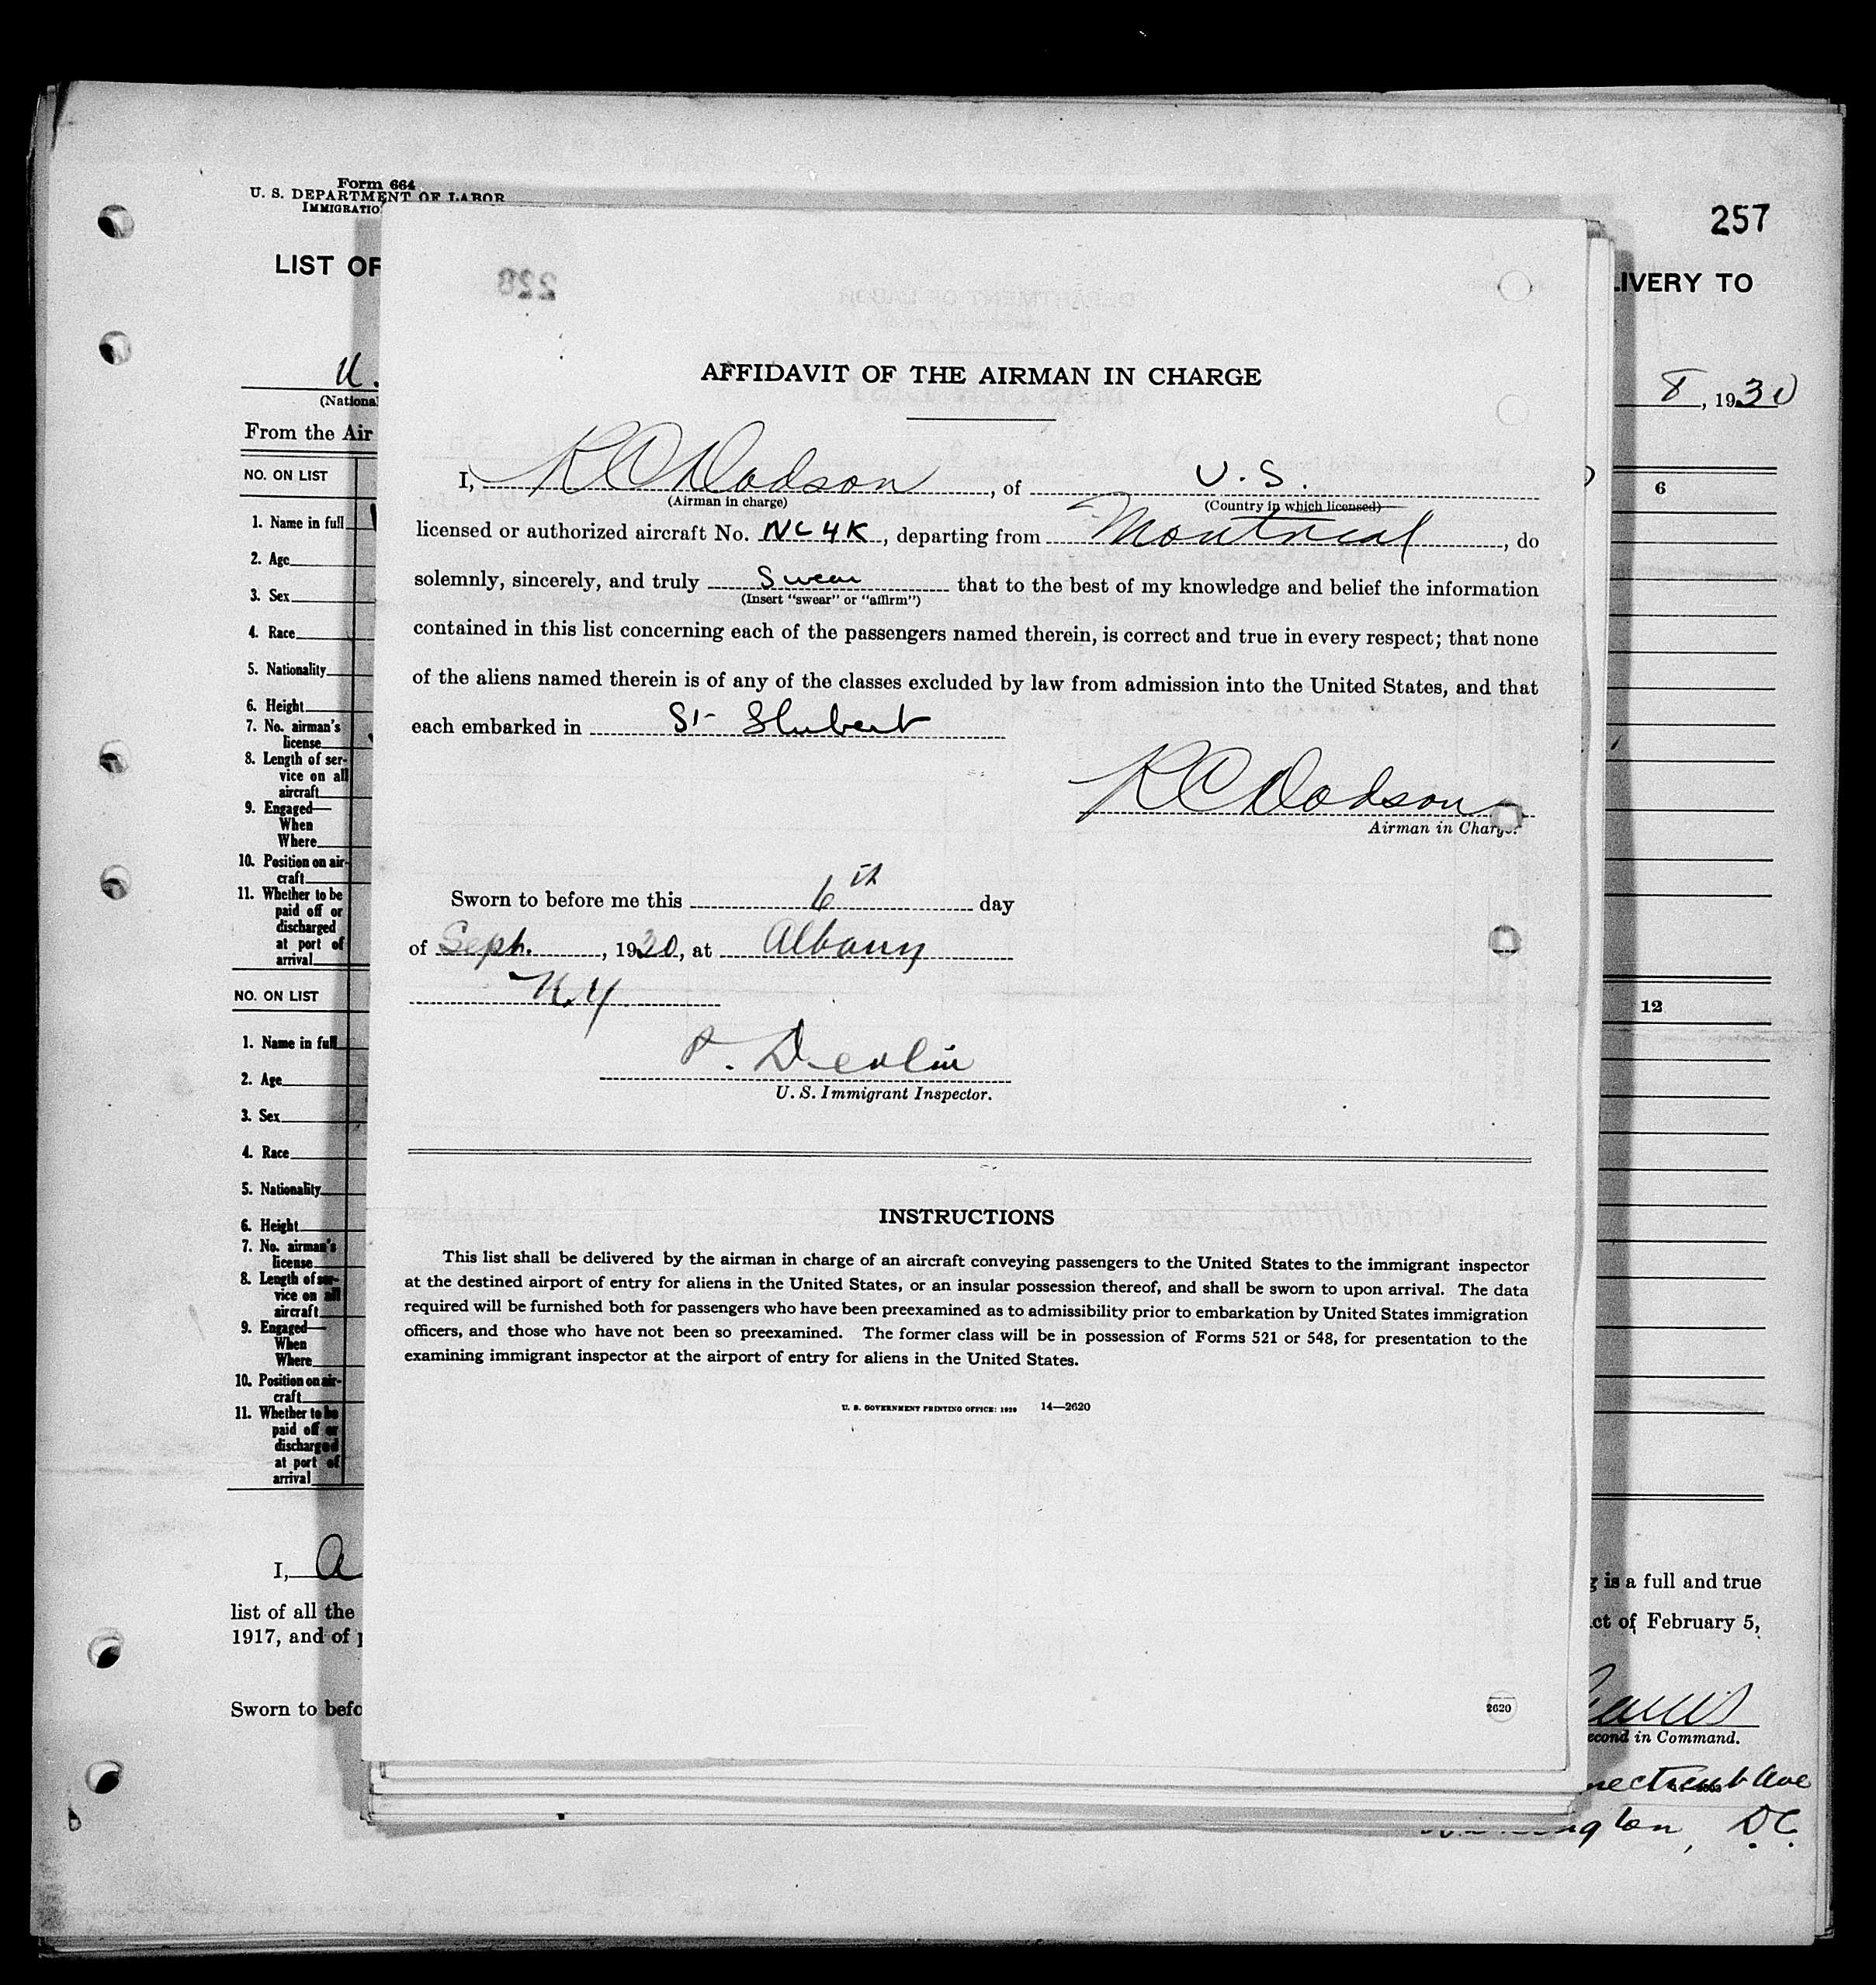 Form 664
U. S. DEPARTMENT OF LABOR
IMMIGRATIO
257
LIST OF
LIVERY TO
U.
8, 1930
(National
From the Air
NO. ON LIST
6
1. Name in full
2. Age
3. Sex
4. Race
5. Nationality
6. Height
7. No. airman's
license
8. Length of ser-
vice on all
aircraft
9. Engaged—
When
Where
10. Position on air-
craft
11. Whether to be
paid off or
discharged
at port of
arrival
NO. ON LIST
12
1. Name in full
2. Age
3. Sex
4. Race
5. Nationality
6. Height
7. No. airman's
license
8. Length of ser-
vice on all
aircraft
9. Engaged—
When
Where
10. Position on air-
craft
11. Whether to be
paid off or
discharged
at port of
arrival
I, A
list of all the
1917, and of p
Sworn to befo
228
AFFIDAVIT OF THE AIRMAN IN CHARGE
I, R C Dodson, of U. S.
(Airman in charge) (Country in which licensed)
licensed or authorized aircraft No. NC4K, departing from Montreal, do
solemnly, sincerely, and truly Swear that to the best of my knowledge and belief the information
(Insert "swear" or "affirm")
contained in this list concerning each of the passengers named therein, is correct and true in every respect; that none
of the aliens named therein is of any of the classes excluded by law from admission into the United States, and that
each embarked in St Hubert
R C Dodson
Airman in Charge.
Sworn to before me this 6th day
of Sept., 1930, at Albany
N.Y
P. Devlin
U. S. Immigrant Inspector.
INSTRUCTIONS
This list shall be delivered by the airman in charge of an aircraft conveying passengers to the United States to the immigrant inspector
at the destined airport of entry for aliens in the United States, or an insular possession thereof, and shall be sworn to upon arrival. The data
required will be furnished both for passengers who have been preexamined as to admissibility prior to embarkation by United States immigration
officers, and those who have not been so preexamined. The former class will be in possession of Forms 521 or 548, for presentation to the
examining immigrant inspector at the airport of entry for aliens in the United States.
U. S. GOVERNMENT PRINTING OFFICE: 1929 14—2620
2620
g is a full and true
ct of February 5,
econd in Command.
necticut Ave
ngton, D.C.